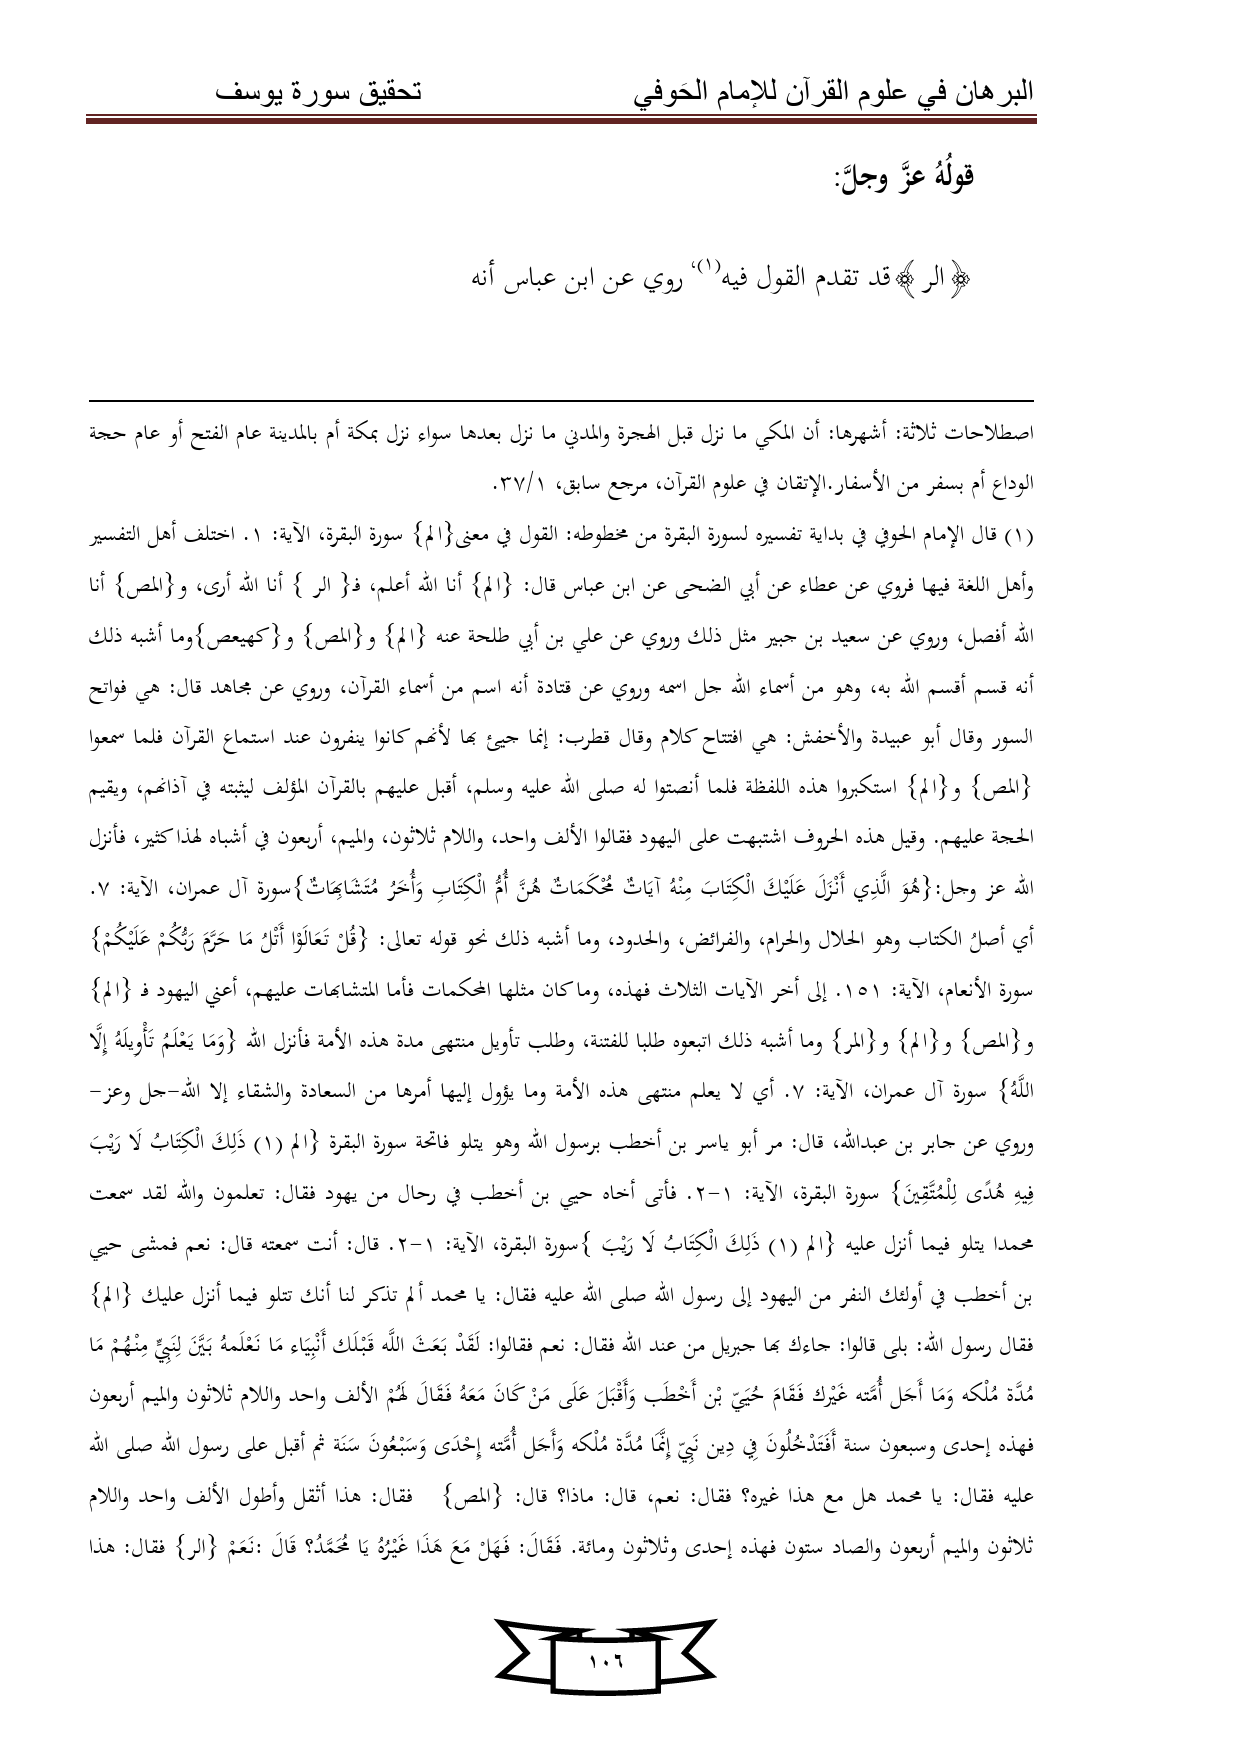 البرهان في علوم القرآن للإمام الحَوفي تحقيق سورة يوسف
قولُهُ عزَّ وجلَّ:
﴿الر﴾قد تقدم القول فيه(١)، روي عن ابن عباس أنه
اصطلاحات ثلاثة: أشهرها: أن المكي ما نزل قبل الهجرة والمدني ما نزل بعدها سواء نزل بمكة أم بالمدينة عام الفتح أو عام حجة
الوداع أم بسفر من الأسفار.الإتقان في علوم القرآن، مرجع سابق، ٣٧/١.
(١) قال الإمام الحوفي في بداية تفسيره لسورة البقرة من مخطوطه: القول في معنى{الم} سورة البقرة، الآية: ١. اختلف أهل التفسير
وأهل اللغة فيها فروي عن عطاء عن أبي الضحى عن ابن عباس قال: {الم} أنا الله أعلم، فـ{ الر } أنا الله أرى، و{المص} أنا
الله أفصل، وروي عن سعيد بن جبير مثل ذلك وروي عن علي بن أبي طلحة عنه {الم} و{المص} و{كهيعص}وما أشبه ذلك
أنه قسم أقسم الله به، وهو من أسماء الله جل اسمه وروي عن قتادة أنه اسم من أسماء القرآن، وروي عن مجاهد قال: هي فواتح
السور وقال أبو عبيدة والأخفش: هي افتتاح كلام وقال قطرب: إنما جيئ بها لأنهم كانوا ينفرون عند استماع القرآن فلما سمعوا
{المص} و{الم} استكبروا هذه اللفظة فلما أنصتوا له صلى الله عليه وسلم، أقبل عليهم بالقرآن المؤلف ليثبته في آذانهم، ويقيم
الحجة عليهم. وقيل هذه الحروف اشتبهت على اليهود فقالوا الألف واحد، واللام ثلاثون، والميم، أربعون في أشباه لهذا كثير، فأنزل
الله عز وجل:{هُوَ الَّذِي أَنْزَلَ عَلَيْكَ الْكِتَابَ مِنْهُ آيَاتٌ مُحْكَمَاتٌ هُنَّ أُمُّ الْكِتَابِ وَأُخَرُ مُتَشَابِهَاتٌ}سورة آل عمران، الآية: ٧.
أي أصلُ الكتاب وهو الحلال والحرام، والفرائض، والحدود، وما أشبه ذلك نحو قوله تعالى: {قُلْ تَعَالَوْا أَتْلُ مَا حَرَّمَ رَبُّكُمْ عَلَيْكُمْ}
سورة الأنعام، الآية: ١٥١. إلى أخر الآيات الثلاث فهذه، وما كان مثلها المحكمات فأما المتشابهات عليهم، أعني اليهود فـ {الم}
و{المص} و{الم} و{المر} وما أشبه ذلك اتبعوه طلبا للفتنة، وطلب تأويل منتهى مدة هذه الأمة فأنزل الله {وَمَا يَعْلَمُ تَأْوِيلَهُ إِلَّا
اللَّهُ} سورة آل عمران، الآية: ٧. أي لا يعلم منتهى هذه الأمة وما يؤول إليها أمرها من السعادة والشقاء إلا الله-جل وعز-
وروي عن جابر بن عبدالله، قال: مر أبو ياسر بن أخطب برسول الله وهو يتلو فاتحة سورة البقرة {الم (١) ذَلِكَ الْكِتَابُ لَا رَيْبَ
فِيهِ هُدًى لِلْمُتَّقِينَ} سورة البقرة، الآية: ١-٢. فأتى أخاه حيي بن أخطب في رحال من يهود فقال: تعلمون والله لقد سمعت
محمدا يتلو فيما أنزل عليه {الم (١) ذَلِكَ الْكِتَابُ لَا رَيْبَ }سورة البقرة، الآية: ١-٢. قال: أنت سمعته قال: نعم فمشى حيي
بن أخطب في أولئك النفر من اليهود إلى رسول الله صلى الله عليه فقال: يا محمد ألم تذكر لنا أنك تتلو فيما أنزل عليك {الم}
فقال رسول الله: بلى قالوا: جاءك بها جبريل من عند الله فقال: نعم فقالوا: لَقَدْ بَعَثَ اللَّه قَبْلَك أَنْبِيَاء مَا نَعْلَمهُ بَيَّنَ لِنَبِيٍّ مِنْهُمْ مَا
مُدَّة مُلْكه وَمَا أَجَل أُمَّته غَيْرك فَقَامَ حُيَيّ بْن أَخْطَب وَأَقْبَلَ عَلَى مَنْ كَانَ مَعَهُ فَقَالَ لَهُمْ الألف واحد واللام ثلاثون والميم أربعون
فهذه إحدى وسبعون سنة أَفَتَدْخُلُونَ فِي دِين نَبِيّ إِنَّمَا مُدَّة مُلْكه وَأَجَل أُمَّته إِحْدَى وَسَبْعُونَ سَنَة ثم أقبل على رسول الله صلى الله
عليه فقال: يا محمد هل مع هذا غيره؟ فقال: نعم، قال: ماذا؟ قال: {المص} فقال: هذا أثقل وأطول الألف واحد واللام
ثلاثون والميم أربعون والصاد ستون فهذه إحدى وثلاثون ومائة. فَقَالَ: فَهَلْ مَعَ هَذَا غَيْرُهُ يَا مُحَمَّدُ؟ قَالَ :نَعَمْ {الر} فقال: هذا
١٠٦